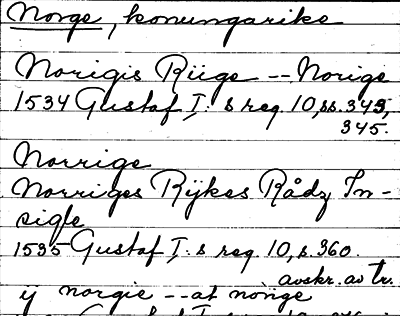 Norge, konungarike
Norigis Riige -- Norige
1534 Gustaf I:s reg. 10, ss. 343,
345.
Norrige
Norriges Rijkes Rådz In-
sigle
1535 Gustaf I:s reg. 10, s. 360.
avskr. av Tr.
ij norgie -- at norige